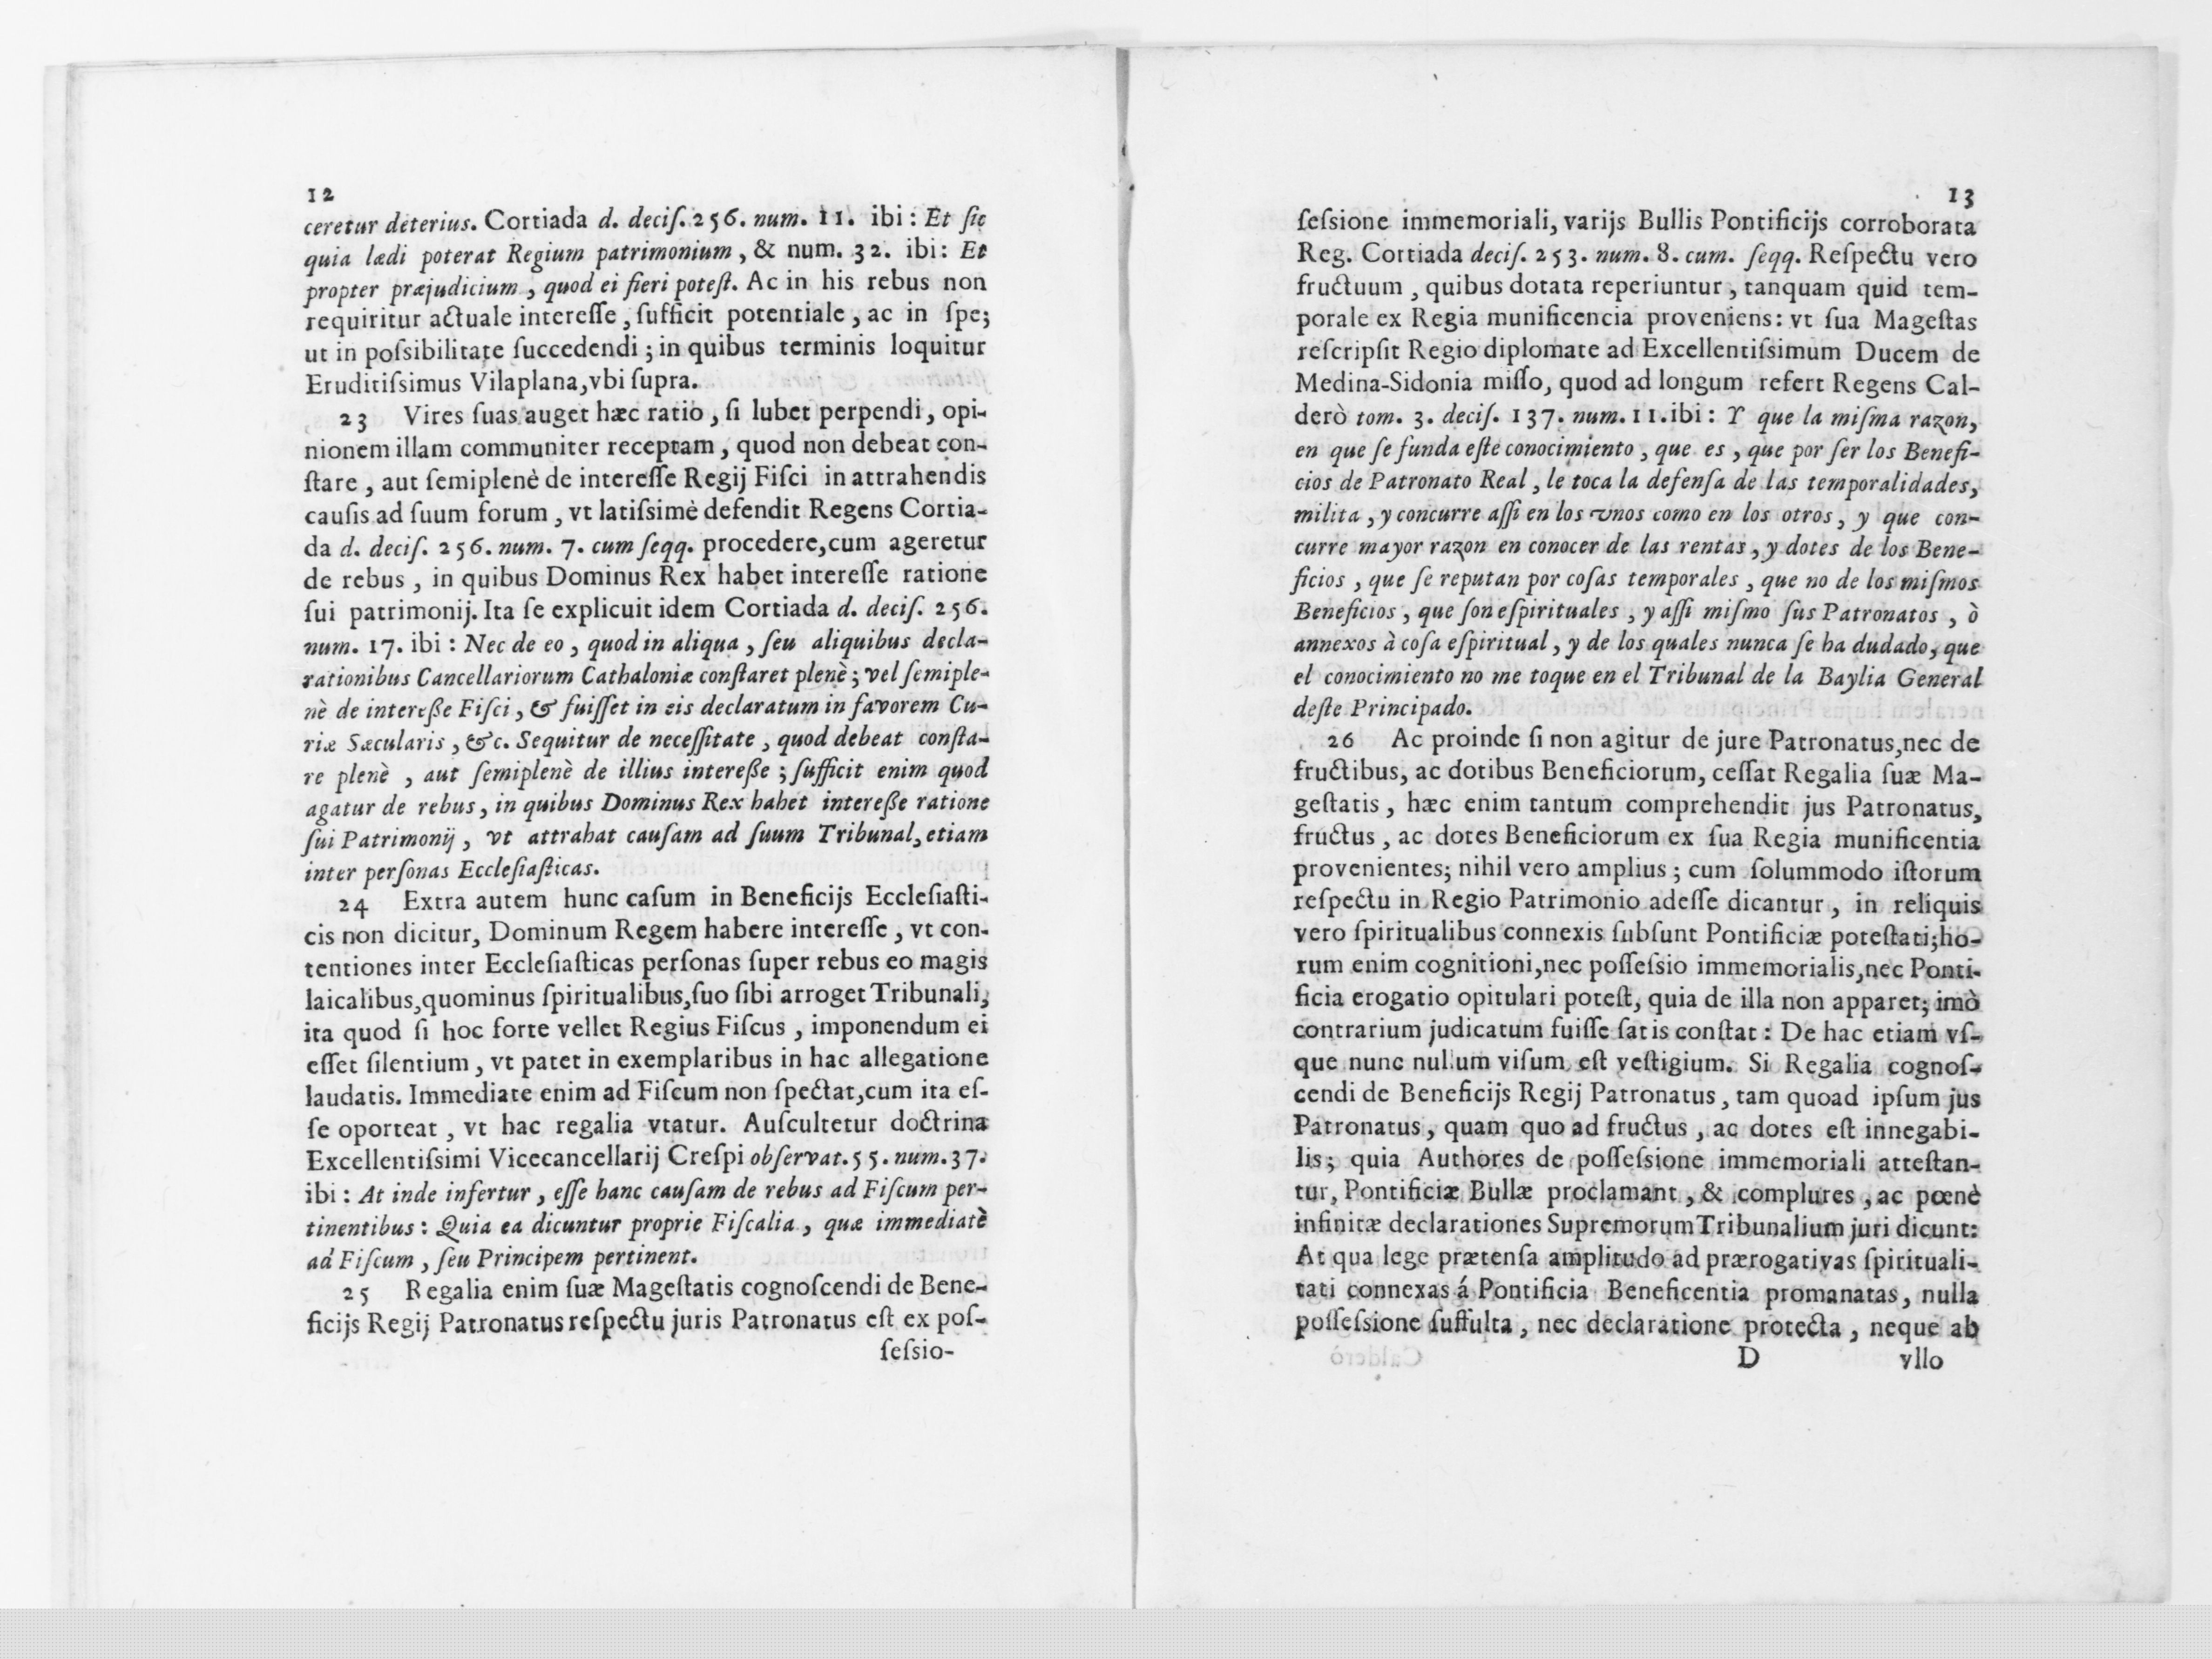 12
ceretur deterius. Cortiada d. deciſ. 256. num. 11. ibi : Et ſic
quia lædi poterat Regium patrimonium , & num. 32. ibi : Et
propter præjudicium , quod ei fieri poteſt. Ac in his rebus non
requiritur actuale intereſſe , ſufficit potentiale , ac in ſpe;
ut in poſsibilitate ſuccedendi ; in quibus terminis loquitur
Eruditiſsimus Vilaplana,vbi ſupra.
23 Vires ſuas auget hæc ratio , ſi lubet perpendi , opi-
nionem illam communiter receptam , quod non debeat con-
ſtare , aut ſemiplenè de intereſſe Regij Fiſci in attrahendis
cauſis ad ſuum forum , vt latiſsimè defendit Regens Cortia-
da d. deciſ. 256. num. 7. cum ſeqq. procedere,cum ageretur
de rebus , in quibus Dominus Rex habet intereſſe ratione
ſui patrimonij. Ita ſe explicuit idem Cortiada d. deciſ. 256.
num. 17. ibi : Nec de eo , quod in aliqua , ſeu aliquibus decla-
rationibus Cancellariorum Cathaloniæ conſtaret plenè ; vel ſemiple-
nè de intereße Fiſci , & fuiſſet in eis declaratum in favorem Cu-
riæ Sæcularis , &c. Sequitur de neceſſitate , quod debeat conſta-
re plenè , aut ſemiplenè de illius intereße ; ſufficit enim quod
agatur de rebus , in quibus Dominus Rex habet intereße ratione
ſui Patrimonij , vt attrahat cauſam ad ſuum Tribunal, etiam
inter perſonas Eccleſiaſticas.
24 Extra autem hunc caſum in Beneficijs Eccleſiaſti-
cis non dicitur, Dominum Regem habere intereſſe , vt con-
tentiones inter Eccleſiaſticas perſonas ſuper rebus eo magis
laicalibus,quominus ſpiritualibus,ſuo ſibi arroget Tribunali,
ita quod ſi hoc forte vellet Regius Fiſcus , imponendum ei
eſſet ſilentium , vt patet in exemplaribus in hac allegatione
laudatis. Immediate enim ad Fiſcum non ſpectat,cum ita eſ-
ſe oporteat , vt hac regalia vtatur. Auſcultetur doctrina
Excellentiſsimi Vicecancellarij Creſpi obſervat. 55. num. 37.
ibi : At inde infertur , eſſe hanc cauſam de rebus ad Fiſcum per-
tinentibus : Quia ea dicuntur proprie Fiſcalia , quæ immediatè
ad Fiſcum , ſeu Principem pertinent.
25 Regalia enim ſuæ Mageſtatis cognoſcendi de Bene-
ficijs Regij Patronatus reſpectu juris Patronatus eſt ex poſ-
ſeſsio-
13
ſeſsione immemoriali, varijs Bullis Pontificijs corroborata
Reg. Cortiada deciſ. 253. num. 8. cum. ſeqq. Reſpectu vero
fructuum , quibus dotata reperiuntur , tanquam quid tem-
porale ex Regia munificencia proveniens: vt ſua Mageſtas
reſcripſit Regio diplomate ad Excellentiſsimum Ducem de
Medina-Sidonia miſſo, quod ad longum refert Regens Cal-
derò tom. 3. deciſ. 137. num. 11. ibi : Y que la miſma razon,
en que ſe funda eſte conocimiento , que es , que por ſer los Benefi-
cios de Patronato Real , le toca la defenſa de las temporalidades,
milita , y concurre aſſi en los vnos como en los otros, y que con-
curre mayor razon en conocer de las rentas , y dotes de los Bene-
ficios , que ſe reputan por coſas temporales , que no de los miſmos
Beneficios , que ſon eſpirituales , y aſſi miſmo ſus Patronatos , ò
annexos à coſa eſpiritual , y de los quales nunca ſe ha dudado, que
el conocimiento no me toque en el Tribunal de la Baylia General
deſte Principado.
26 Ac proinde ſi non agitur de jure Patronatus,nec de
fructibus, ac dotibus Beneficiorum, ceſſat Regalia ſuæ Ma-
geſtatis , hæc enim tantum comprehendit jus Patronatus,
fructus , ac dotes Beneficiorum ex ſua Regia munificentia
provenientes; nihil vero amplius ; cum ſolummodo iſtorum
reſpectu in Regio Patrimonio adeſſe dicantur , in reliquis
vero ſpiritualibus connexis ſubſunt Pontificiæ poteſtati;ho-
rum enim cognitioni,nec poſſeſsio immemorialis,nec Ponti-
ficia erogatio opitulari poteſt, quia de illa non apparet; imò
contrarium judicatum fuiſſe ſatis conſtat : De hac etiam vſ-
que nunc nullum viſum eſt veſtigium. Si Regalia cognoſ-
cendi de Beneficijs Regij Patronatus , tam quoad ipſum jus
Patronatus , quam quo ad fructus , ac dotes eſt innegabi-
lis ; quia Authores de poſſeſsione immemoriali atteſtan-
tur, Pontificiæ Bullæ proclamant , & complures , ac pœnè
infinitæ declarationes Supremorum Tribunalium juri dicunt:
At qua lege prætenſa amplitudo ad prærogativas ſpirituali-
tati connexas á Pontificia Beneficentia promanatas, nulla
poſſeſsione ſuffulta , nec declaratione protecta , neque ab
D vllo